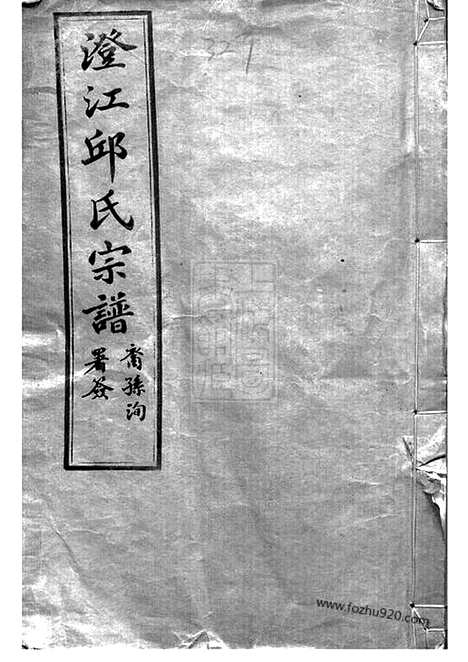 澄江邱氏宗譜
裔孫洵
署簽
327
www.fozhu920.com